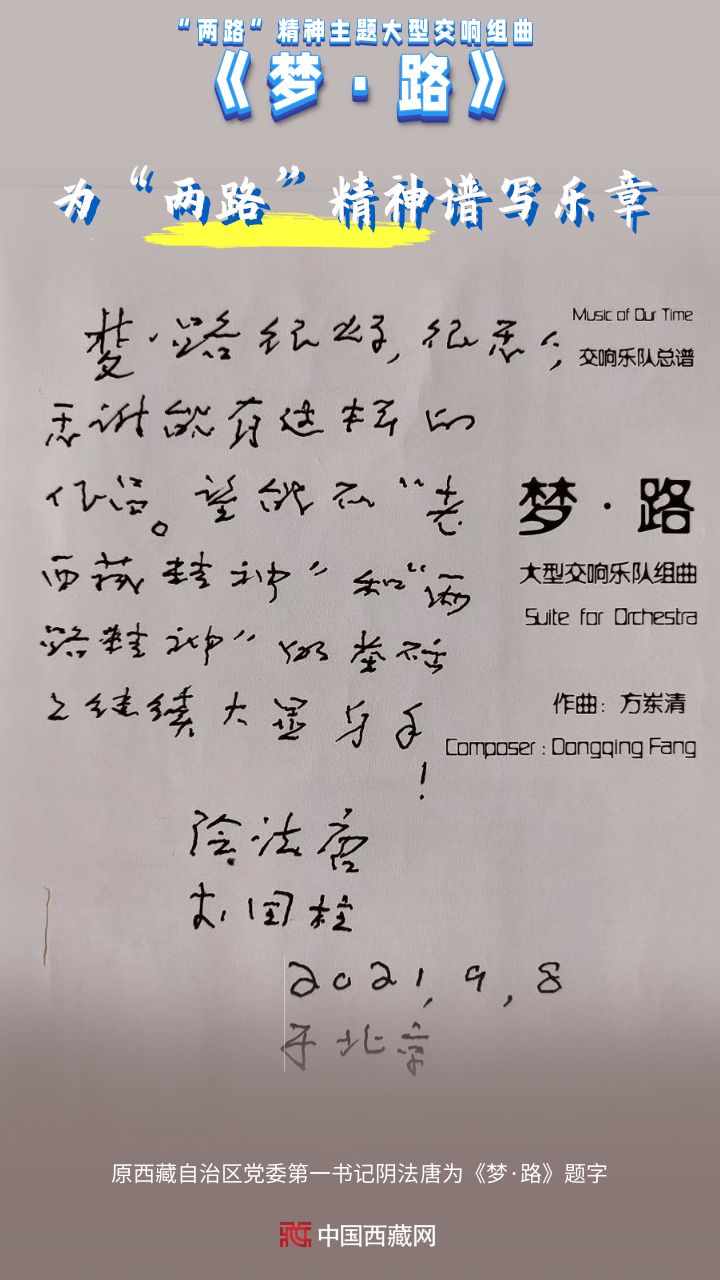 “两路”精神主题大型交响组曲
《梦·路》
为“两路”精神谱写乐章
Music of Our Time
交响乐队总谱
梦·路很好,很感人,
感谢能有这样的
作品。望能在“老
西藏精神”和“两
路精神”的基础
上继续大显身手
!
梦·路
大型交响乐队组曲
Suite for Orchestra
作曲：方岽清
Composer : Dongqing Fang
陰法唐
李国柱
2021,9,8
于北京
原西藏自治区党委第一书记阴法唐为《梦·路》题字
中国西藏网